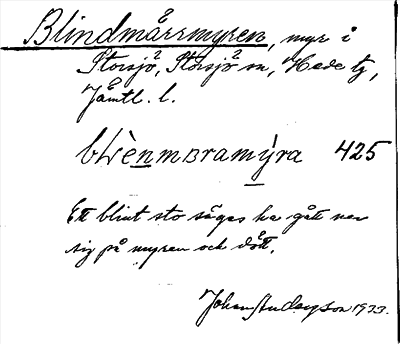 Blindmärrmyren, myr i
Storsjö, Storsjö sn, Hede tg,
Jämtl. l.
blènmᴃramýra 425
Ett blint sto säges ha gått ner
sig på myren och dött.
Johan Anderson 1933.